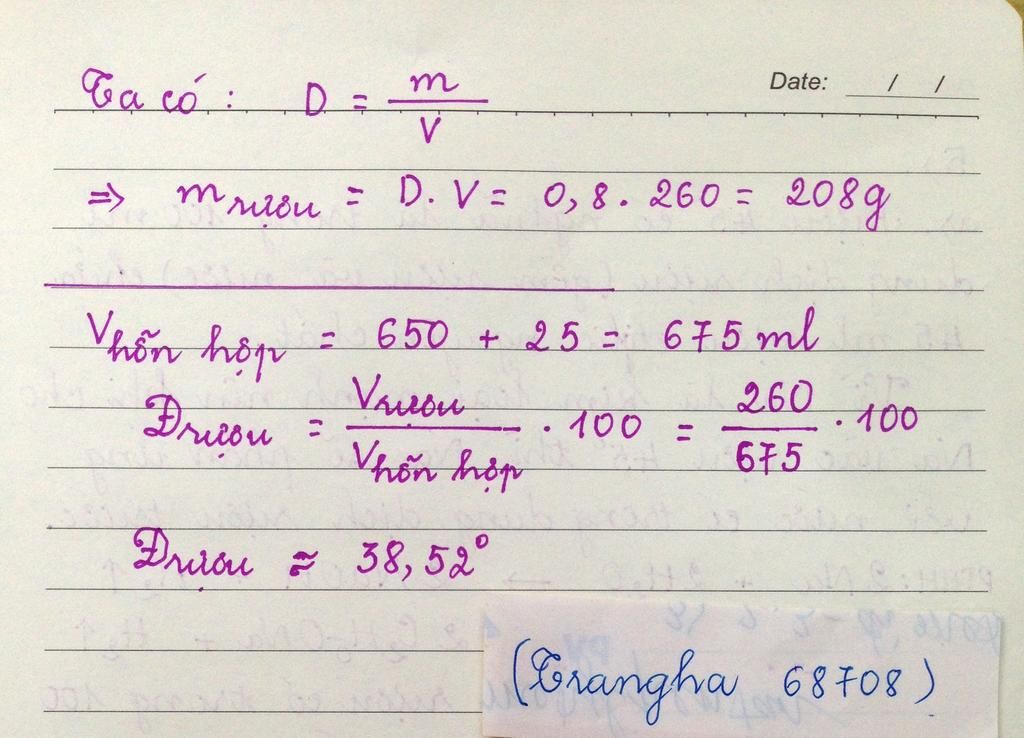 Date: / /
Ta có : D = m / V
=> m rượu = D. V = 0,8 . 260 = 208g
V hỗn hợp = 650 + 25 = 675 ml
Đ rượu = V rượu / V hỗn hợp . 100 = 260 / 675 . 100
Đ rượu ≈ 38,52°
(Trangha 68708)